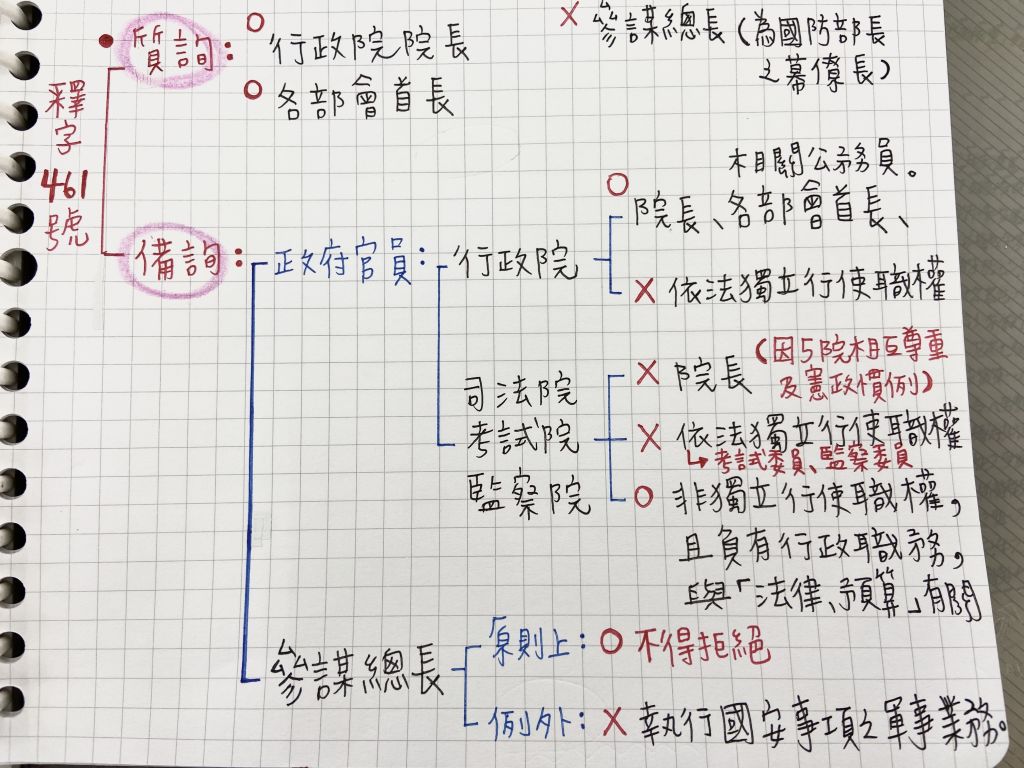 釋字461號
• 質詢:
○ 行政院院長
○ 各部會首長
× 參謀總長(為國防部長
之幕僚長)
備詢:
政府官員:
行政院
○ 院長、各部會首長、
相關公務員。
× 依法獨立行使職權
司法院
考試院
監察院
× 院長(因5院相互尊重
及憲政慣例)
× 依法獨立行使職權
↳ 考試委員、監察委員
○ 非獨立行使職權,
且負有行政職務,
與「法律、預算」有關
參謀總長
原則上: ○ 不得拒絕
例外: × 執行國安事項之軍事業務。